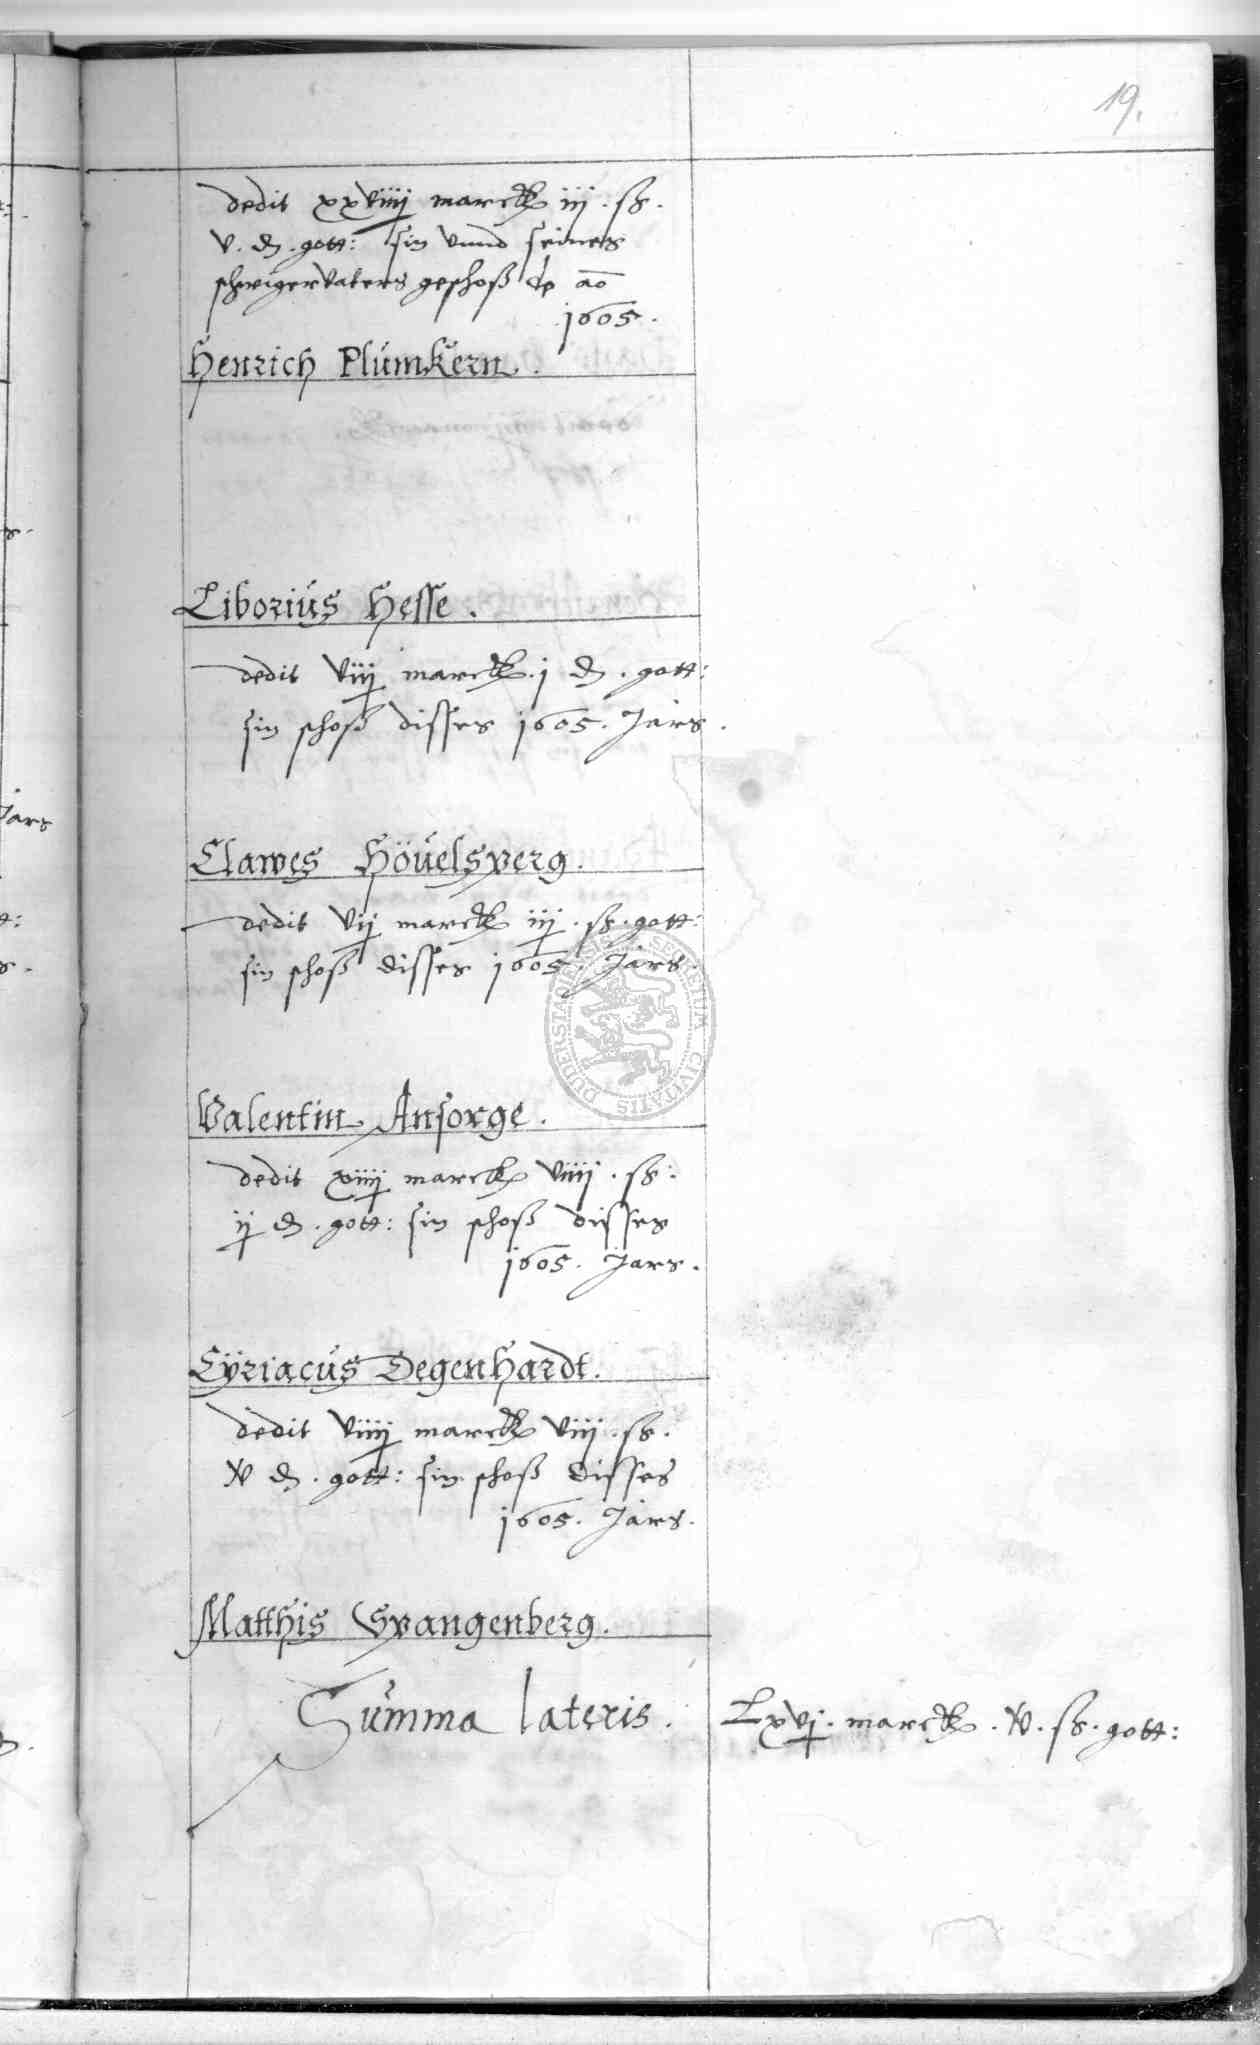 19.
dedit xxviiij marck iij . ß .
v . d . gott: sin vnnd seines
schwigervaters geschoß de ao
1605 .
Henrich Plümkern .
Liborius Hesse .
dedit viij marck . j d . gott:
sin schoß disses 1605 . Jars .
Clawes Höuelsperg .
dedit vij marck iij . ß . gott:
sin schoß disses 1605 . Jars .
Valentin Ansorge .
dedit xiiij marck viiij . ß :
ij d . gott: sin schoß disses
1605 . Jars .
Cÿriacus Degenhardt .
dedit viiij marck viij . ß .
v d . gott: sin schoß disses
1605 . Jars .
Matthis Spangenberg .
Summa lateris . Lxvj . marck . v . ß . gott:
SECRETUM CIVITATIS DUDERSTA